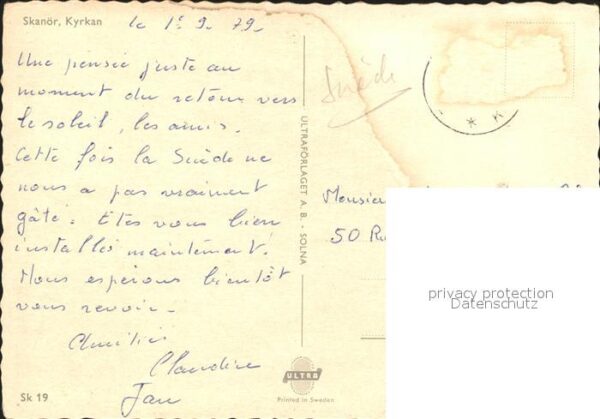 Skanör, Kyrkan
le 1º 9. 79.
Une pensée juste au
moment du retour vers
le soleil, les amis.
Cette fois la Suède ne
nous a pas vraiment
gâté. Etes vous bien
installés maintenant?
Nous espérons bientôt
vous revoir.
Amitiés
Claudine
Jan
Sk 19
ULTRAFÖRLAGET A. B. - SOLNA
ULTRA
Printed in Sweden
Suède
K
Monsieur
50 Ru
privacy protection
Datenschutz